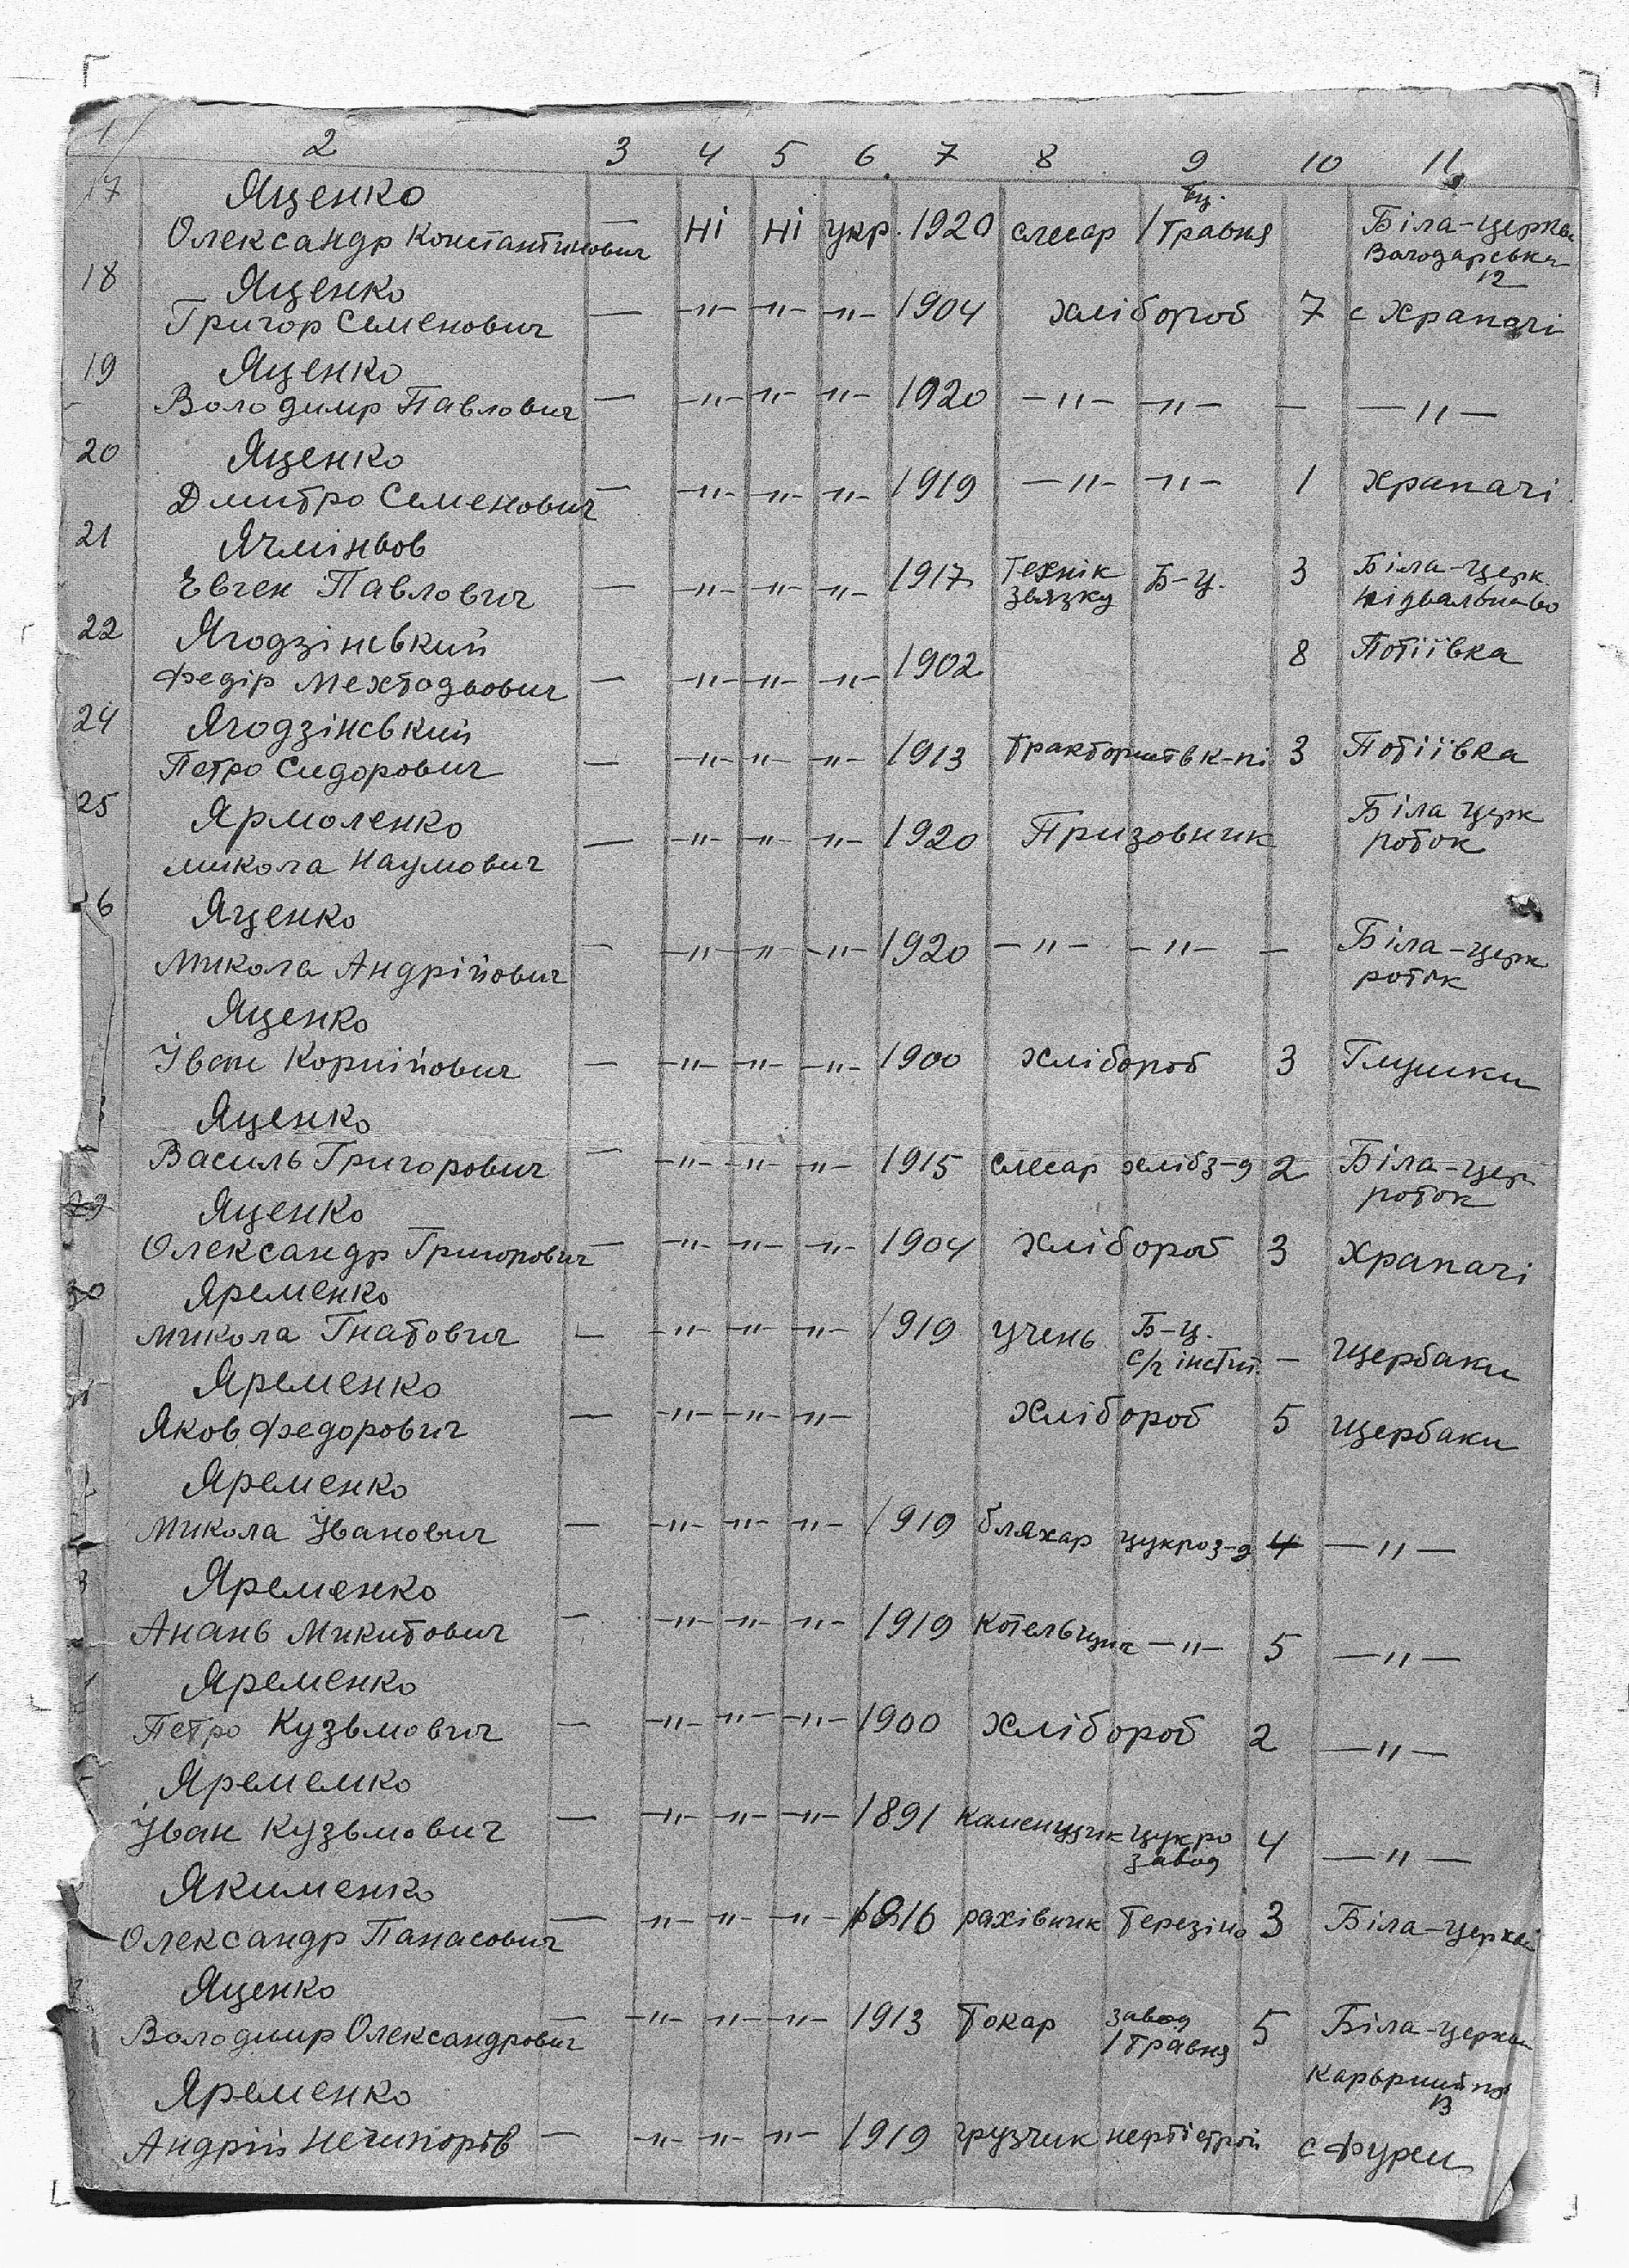 1 2 3 4 5 6 7 8 9 10 11
17 Яценко
Олександр Константинович — ні ні укр. 1920 слесар бц. 1 Травня Біла-церква
Володарська
12
18 Яценко
Григор Семенович — -"- -"- -"- 1904 хлібороб 7 с Храпачі
19 Яценко
Володимр Павлович — -"- -"- -"- 1920 -"- -"- — -"-
20 Яценко
Дмитро Семенович — -"- -"- -"- 1919 -"- -"- 1 Храпачі
21 Ячміньов
Евген Павлович — -"- -"- -"- 1917 Технік Б-ц. 3 Біла-церк.
звязку
22 Ягодзінський
Федір Мехтодьович — -"- -"- -"- 1902 8 Потіївка
24 Ягодзінський
Петро Сидорович — -"- -"- -"- 1913 тракторист в к-пі 3 Потіївка
25 Ярмоленко
Микола Наумович — -"- -"- -"- 1920 Призовник Біла церк
роток
6 Яценко
Микола Андрійович — -"- -"- -"- 1920 -"- -"- — Біла-церк
роток
Яценко
Іван Корнійович — -"- -"- -"- 1900 хлібороб 3 Глушки
Яценко
Василь Григорович — -"- -"- -"- 1915 слесар хлібз-д 2 Біла-цер
роток
29 Яценко
Олександр Григорович — -"- -"- -"- 1904 хлібороб 3 Храпачі
30 Яременко
Микола Гнатович — -"- -"- -"- 1919 учень Б-ц. — Щербаки
с/г інстит.
Яременко
Яков Федорович — -"- -"- -"- хлібороб 5 Щербаки
Яременко
Микола Іванович — -"- -"- -"- 1919 бляхар цукроз-д 4 -"-
3 Яременко
Анань Микитович — -"- -"- -"- 1919 Котельщик -"- 5 -"-
Яременко
Петро Кузьмович — -"- -"- -"- 1900 хлібороб 2 -"-
Яремемко
Іван Кузьмович — -"- -"- -"- 1891 каменщик цукро 4 -"-
завод
Якименко
Олександр Панасович — -"- -"- -"- 1916 рахівник Терезіно 3 Біла-церква
Яценко
Володимир Олександрович — -"- -"- -"- 1913 токар завод 5 Біла-церква
1 травня
Карьрний
13
Яременко
Андрій Нечипорів — -"- -"- -"- 1919 грузчик нефтестрой с Фурси